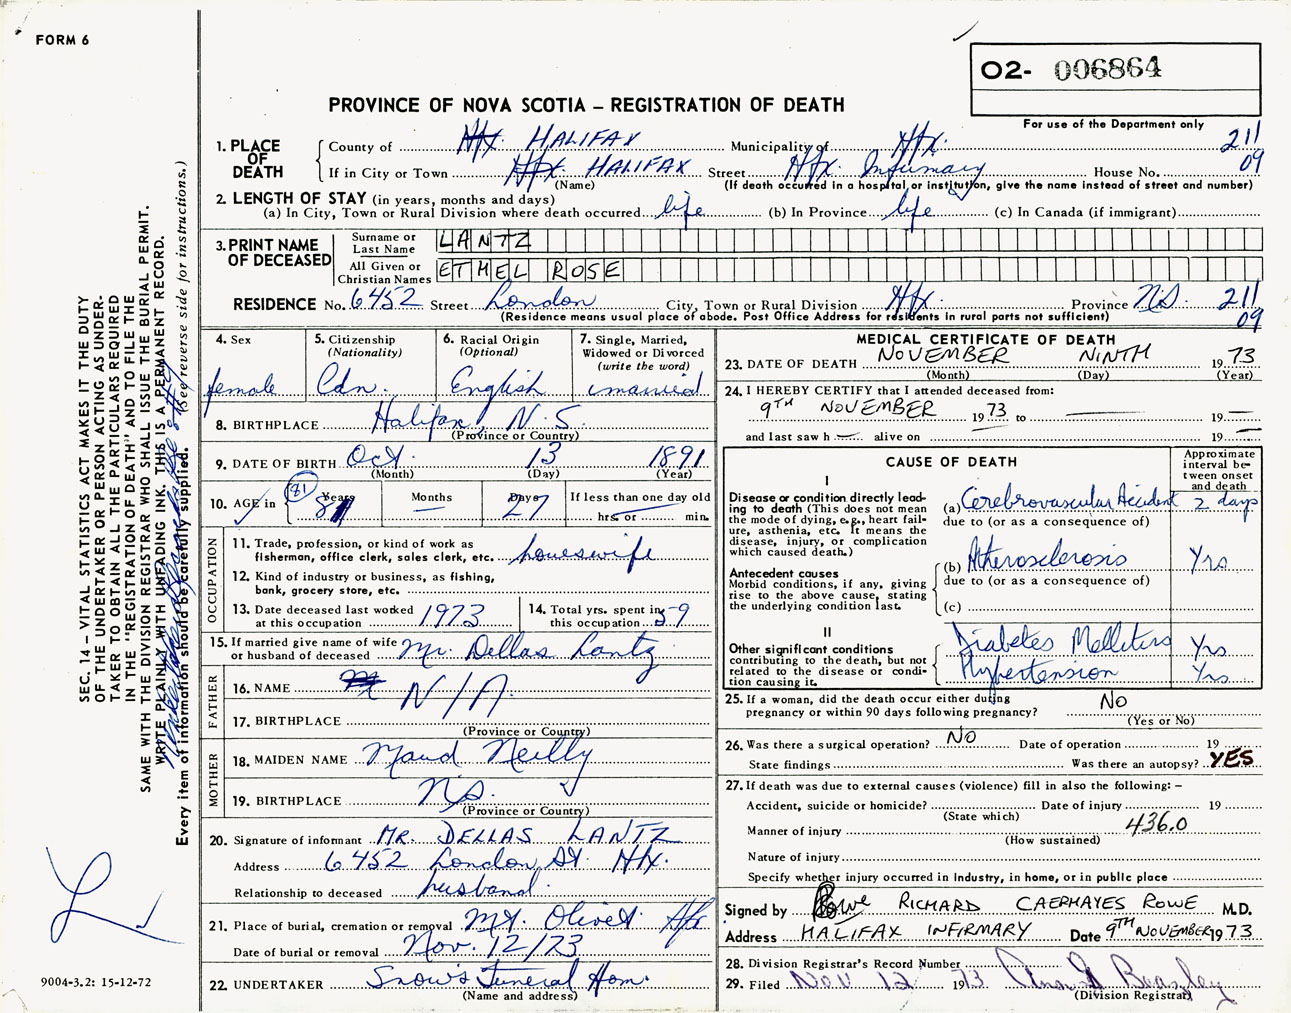 FORM 6
O2- 006864
For use of the Department only
PROVINCE OF NOVA SCOTIA – REGISTRATION OF DEATH
1. PLACE OF DEATH
County of Hfx. HALIFAX Municipality of Hfx. 211
If in City or Town Hfx. HALIFAX Street Hfx. Infirmary House No. 09
(Name) (If death occurred in a hospital or institution, give the name instead of street and number)
2. LENGTH OF STAY (in years, months and days)
(a) In City, Town or Rural Division where death occurred life (b) In Province life (c) In Canada (if immigrant)
3. PRINT NAME OF DECEASED
Surname or Last Name LANTZ
All Given or Christian Names ETHEL ROSE
RESIDENCE No. 6452 Street London City, Town or Rural Division Hfx. Province N.S. 211
(Residence means usual place of abode. Post Office Address for residents in rural parts not sufficient) 09
4. Sex female
5. Citizenship (Nationality) Cdn.
6. Racial Origin (Optional) English
7. Single, Married, Widowed or Divorced (write the word) married
8. BIRTHPLACE Halifax, N.S.
(Province or Country)
9. DATE OF BIRTH Oct. 13 1891
(Month) (Day) (Year)
10. AGE in 81 Years Months Days 27 If less than one day old
hrs. or min.
OCCUPATION
11. Trade, profession, or kind of work as fisherman, office clerk, sales clerk, etc. housewife
12. Kind of industry or business, as fishing, bank, grocery store, etc.
13. Date deceased last worked at this occupation 1973
14. Total yrs. spent in this occupation 59
15. If married give name of wife or husband of deceased Mr. Dellas Lantz
FATHER
16. NAME N/A
17. BIRTHPLACE
(Province or Country)
MOTHER
18. MAIDEN NAME Maud Neilly
19. BIRTHPLACE N.S.
(Province or Country)
20. Signature of informant MR. DELLAS LANTZ
Address 6452 London St. Hfx.
Relationship to deceased husband
21. Place of burial, cremation or removal Mt. Olivet Hfx
Date of burial or removal Nov. 12/73
22. UNDERTAKER Snow's Funeral Hom.
(Name and address)
MEDICAL CERTIFICATE OF DEATH
23. DATE OF DEATH NOVEMBER NINTH 1973
(Month) (Day) (Year)
24. I HEREBY CERTIFY that I attended deceased from:
9TH NOVEMBER 1973 to 19
and last saw h alive on 19
CAUSE OF DEATH
Approximate interval between onset and death
I
Disease or condition directly leading to death (This does not mean the mode of dying, e.g., heart failure, asthenia, etc. It means the disease, injury, or complication which caused death.)
(a) Cerebrovascular Accident 2 days
due to (or as a consequence of)
Antecedent causes
Morbid conditions, if any, giving rise to the above cause, stating the underlying condition last.
(b) Atherosclerosis Yrs
due to (or as a consequence of)
(c)
II
Other significant conditions contributing to the death, but not related to the disease or condition causing it.
Diabetes Mellitus Yrs
Hypertension Yrs.
25. If a woman, did the death occur either during pregnancy or within 90 days following pregnancy? No
(Yes or No)
26. Was there a surgical operation? No Date of operation 19
State findings Was there an autopsy? YES
27. If death was due to external causes (violence) fill in also the following: –
Accident, suicide or homicide? Date of injury 19
(State which)
Manner of injury 436.0
(How sustained)
Nature of injury
Specify whether injury occurred in Industry, in home, or in public place
Signed by Rowe RICHARD CAERHAYES ROWE M.D.
Address HALIFAX INFIRMARY Date 9TH NOVEMBER 1973
28. Division Registrar's Record Number
29. Filed NOV 12 1973 Beasley
(Division Registrar)
SEC. 14 – VITAL STATISTICS ACT MAKES IT THE DUTY
OF THE UNDERTAKER OR PERSON ACTING AS UNDER-
TAKER TO OBTAIN ALL THE PARTICULARS REQUIRED
IN THE "REGISTRATION OF DEATH" AND TO FILE THE
SAME WITH THE DIVISION REGISTRAR WHO SHALL ISSUE THE BURIAL PERMIT.
WRITE PLAINLY WITH UNFADING INK. THIS IS A PERMANENT RECORD.
Every item of information should be carefully supplied. (See reverse side for instructions.)
L
9004-3.2: 15-12-72